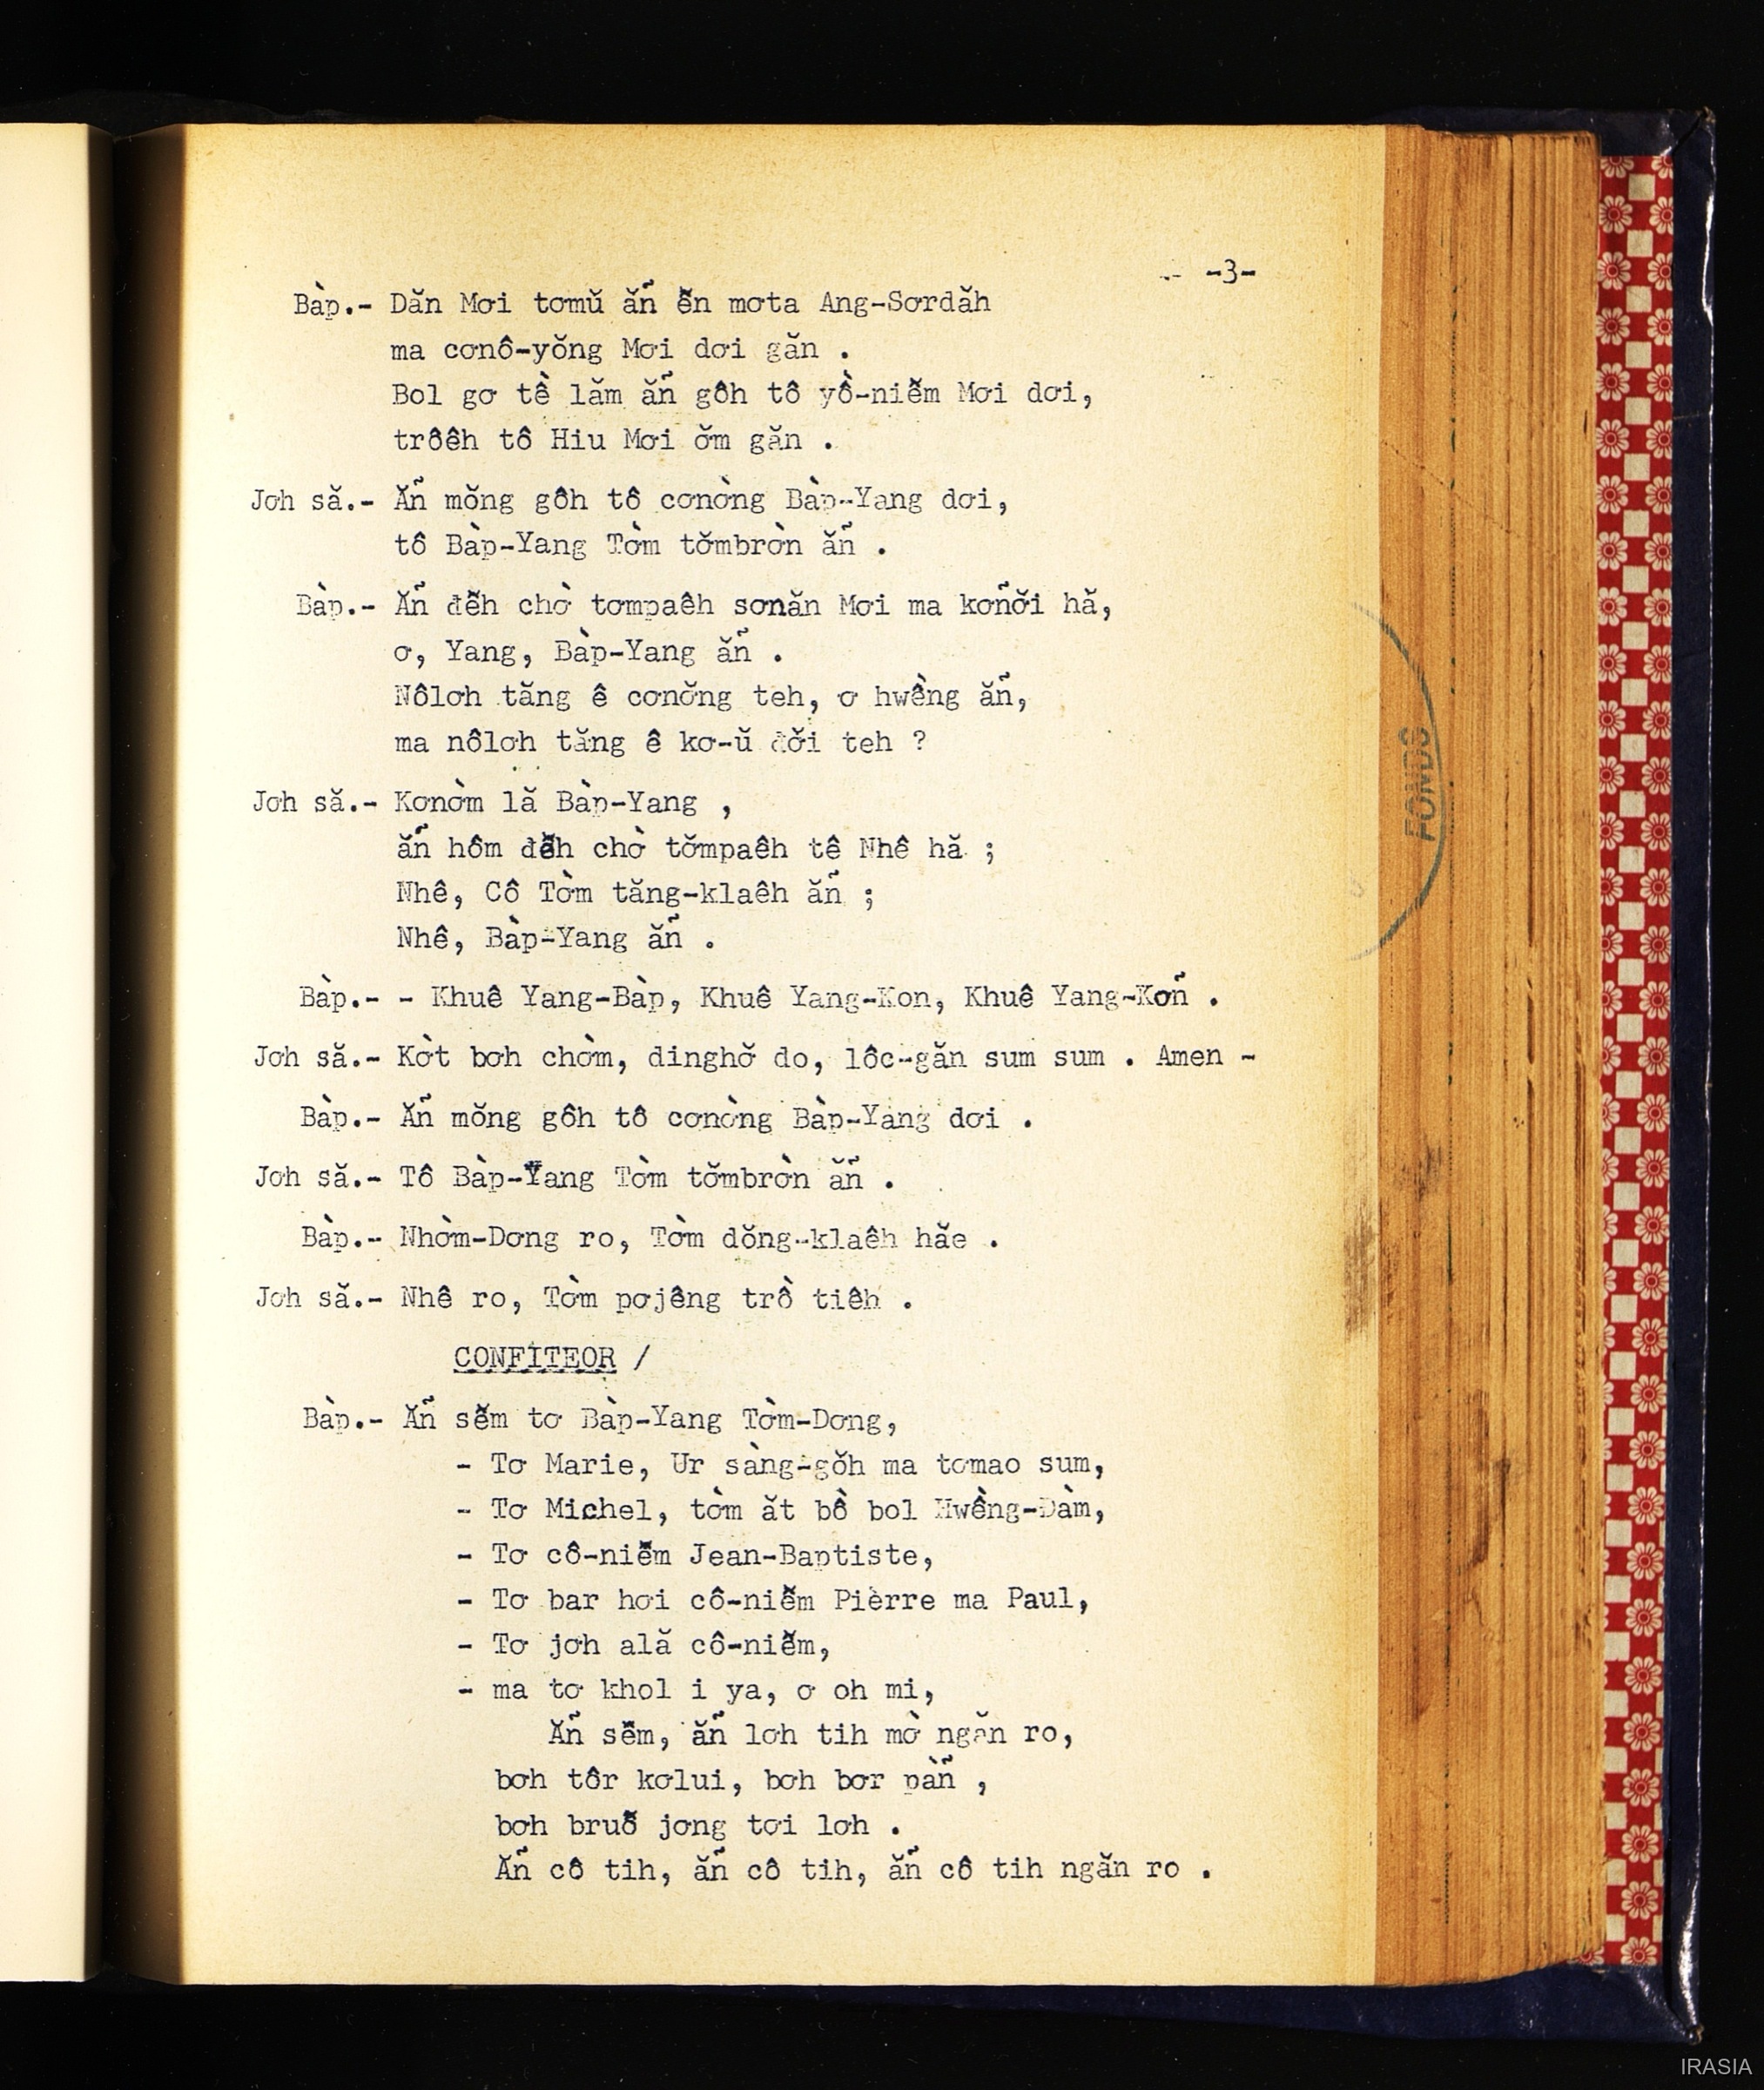 -3-
Bàp.- Dăn Mơi tơmŭ ăñ ĕ̀n mơta Ang-Sơrdăh
ma cơnô-yŏng Mơi dơi găn .
Bol gơ tề lăm ăñ gôh tô yồ-niê̆m Mơi dơi,
trôêh tô Hiu Mơi ơ̆m găn .
Jơh să.- Ăñ mŏng gôh tô cơnờng Bàp-Yang dơi,
tô Bàp-Yang Tờm tơ̆mbrờn ăñ .
Bàp.- Ăñ đê̆h chờ tơmpaêh sơnăn Mơi ma kơñơ̆i hă,
ơ, Yang, Bàp-Yang ăñ .
Nôlơh tăng ê cơnơ̆ng teh, ơ hwềng ăñ,
ma nôlơh tăng ê kơ-ŭ đơ̆i teh ?
Jơh să.- Kơnờm lă Bàp-Yang ,
ăñ hôm đê̆h chờ tơ̆mpaêh tê Nhê hă ;
Nhê, Cô Tờm tăng-klaêh ăñ ;
Nhê, Bàp-Yang ăñ .
Bàp.- - Khuê Yang-Bàp, Khuê Yang-Kon, Khuê Yang-Kơñ .
Jơh să.- Kờt bơh chờm, dinghơ̆ do, lôc-găn sum sum . Amen -
Bàp.- Ăñ mŏng gôh tô cơnờng Bàp-Yang dơi .
Jơh să.- Tô Bàp-Yang Tờm tơ̆mbrờn ăñ .
Bàp.- Nhờm-Dơng ro, Tờm dŏng-klaêh hăe .
Jơh să.- Nhê ro, Tờm pơjêng trồ tiêh .
CONFITEOR /
Bàp.- Ăñ sê̆m tơ Bàp-Yang Tờm-Dơng,
- Tơ Marie, Ur sàng-gŏh ma tơmao sum,
- Tơ Michel, tờm ăt bồ bol Hwềng-Dàm,
- Tơ cô-niê̆m Jean-Baptiste,
- Tơ bar hơi cô-niê̆m Pièrre ma Paul,
- Tơ jơh ală cô-niê̆m,
- ma tơ khol i ya, ơ oh mi,
Ăñ sê̆m, ăñ lơh tih mờ ngăn ro,
bơh tôr kơlui, bơh bơr pàñ ,
bơh bruô̆ jơng tơi lơh .
Ăñ cô tih, ăñ cô tih, ăñ cô tih ngăn ro .
FONDS
IRASIA